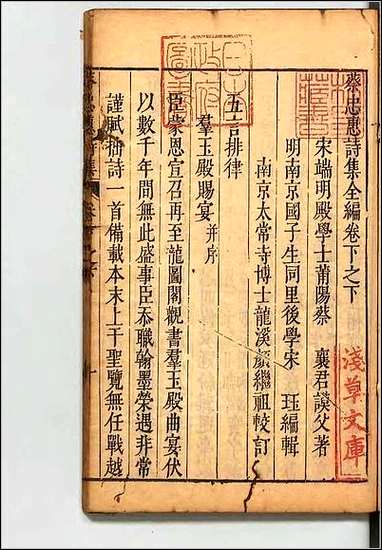 蔡忠惠詩集全編卷下之下
宋端明殿學士莆陽蔡 襄君謨父著
明南京國子生同里後學宋 珏編輯
南京太常寺博士龍溪顏繼祖較訂
五言排律
羣玉殿賜宴 并序
臣蒙恩宣召再至龍圖閣觀書羣玉殿曲宴伏
以數千年間無此盛事臣忝職翰墨榮遇非常
謹賦拙詩一首備載本末上干聖覽無任戰越
淺草文庫
日本
政府
圖書